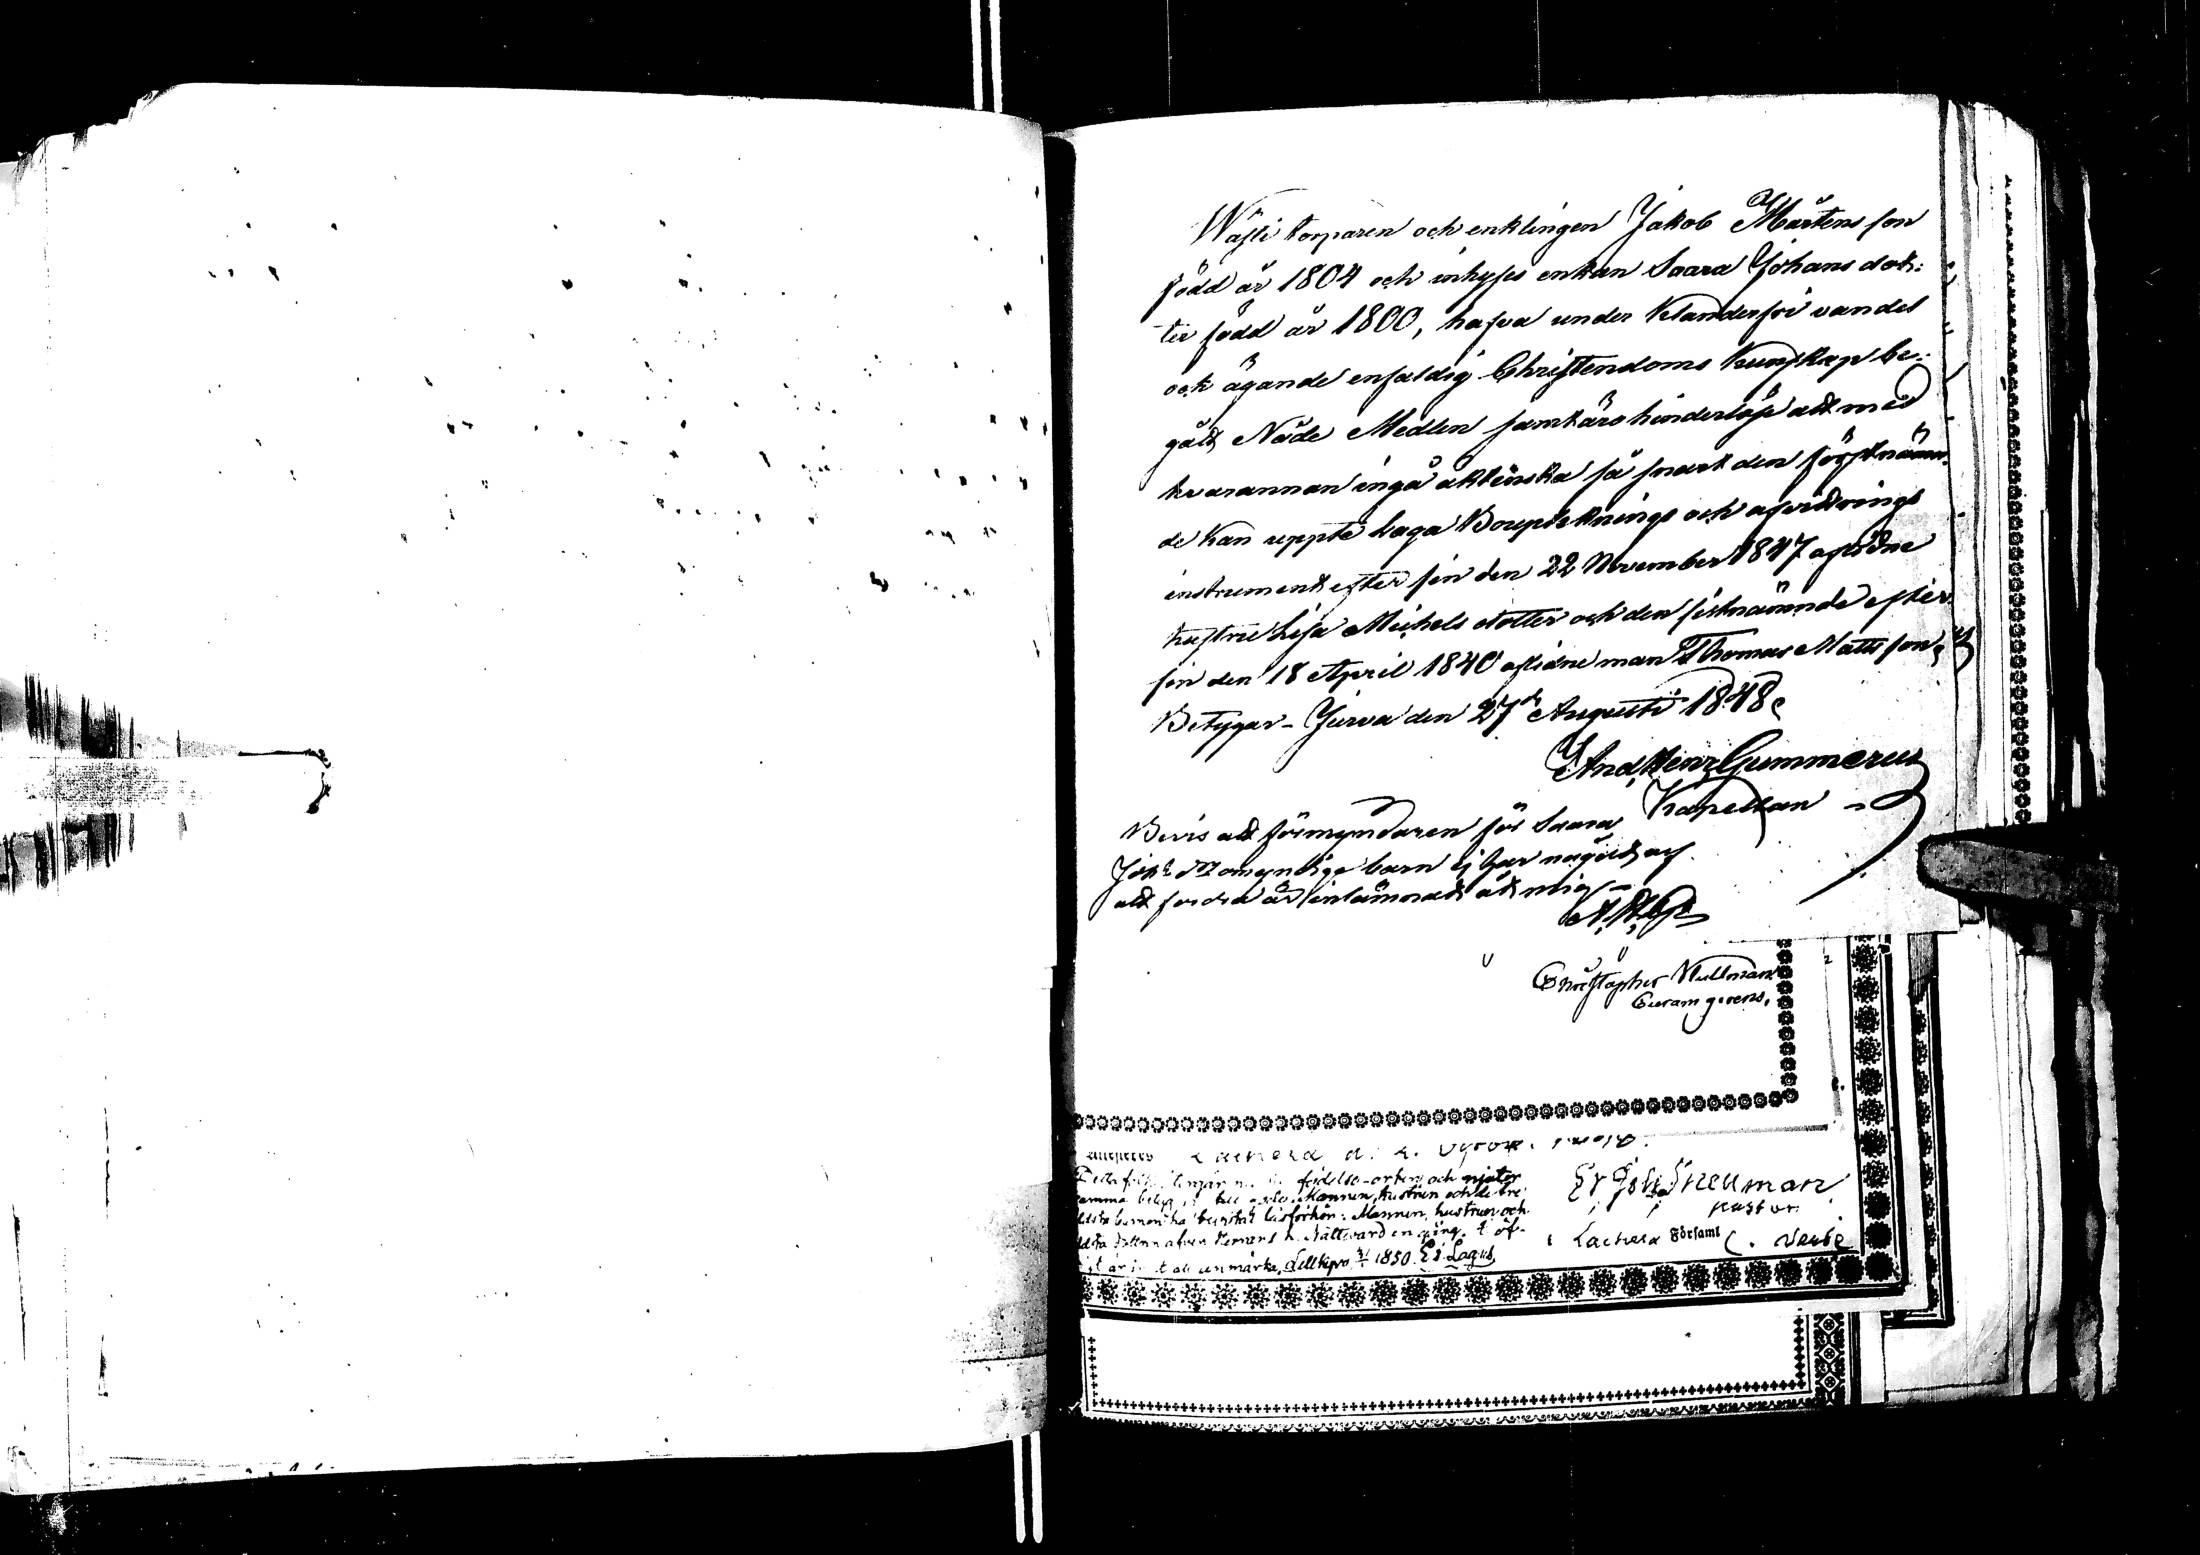 Wäsli torparen och enklingen Jakob Mårtens son
född år 1804 och inhyses enkan Saara Johans dot:
ter född år 1800, hafva under klanderfri vandel
och ägande enfaldig Christendoms kunskap be:
gått Nåde Medlen samt äro hinderlöse att med
hvarannan ingå äktenska så snart den förstnämn:
de kan uppte laga Bouptecknings och afvittrings
instrument efter sin den 22 November 1847 aflidne
hustru Lisa Michels dotter och den sistnämnde efter
sin den 18 April 1840 aflidne man Thomas Matts son,
Betygar - Jurva den 27de Augusti 1848,
And Henr Gummerus
Kapellan
Bevis att förmyndaren för Saara
Joh: dr omyndige barn ej har något arf
att fordra är inlämnadt åt mig -
Christopher Wellman
Curam gerens.
födelse-orten och njuter
Mannen, hustrun och de tre
Mannen, hustrun och
Nattvard en gång.
anmärka, Lillkyro 1850. Ei Lagus,
Er Joh Snellman
pastor
i Lachela Församl